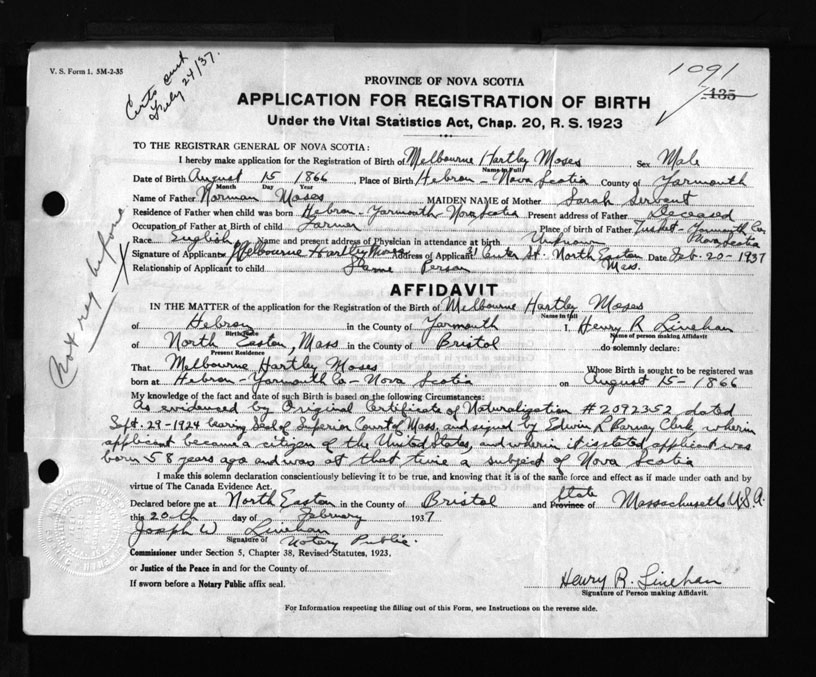 V. S. Form 1. 5M-2-35
Certs
July 24/37.
1091
135
PROVINCE OF NOVA SCOTIA
APPLICATION FOR REGISTRATION OF BIRTH
Under the Vital Statistics Act, Chap. 20, R. S. 1923
TO THE REGISTRAR GENERAL OF NOVA SCOTIA:
I hereby make application for the Registration of Birth of Melbourne Hartley Moses Sex Male
Name in Full
Date of Birth August 15 1866 Place of Birth Hebron - Nova Scotia County of Yarmouth
Month Day Year
Name of Father Norman Moses MAIDEN NAME of Mother Sarah Servent
Residence of Father when child was born Hebron - Yarmouth - Nova Scotia Present address of Father Deceased
Occupation of Father at Birth of child Farmer Place of birth of Father Tusket - Yarmouth Co. Nova Scotia
Race English Name and present address of Physician in attendance at birth Unknown
Signature of Applicant Melbourne Hartley Moses Address of Applicant 31 Center St. North Easton Mass. Date Feb. 20 - 1937
Relationship of Applicant to child Same Person
Not reg before
AFFIDAVIT
IN THE MATTER of the application for the Registration of the Birth of Melbourne Hartley Moses
Name in full
of Hebron in the County of Yarmouth I, Henry R Linehan
Birthplace Name of person making Affidavit
of North Easton, Mass in the County of Bristol do solemnly declare:
Present Residence
That Melbourne Hartley Moses Whose Birth is sought to be registered was
born at Hebron - Yarmouth Co - Nova Scotia on August 15 - 1866
My knowledge of the fact and date of such Birth is based on the following Circumstances:
As evidenced by Original Certificate of Naturalization #2092352 dated
Sept. 29 - 1924 bearing Seal of Superior Court of Mass, and signed by Edwin L Barney Clerk wherein
applicant became a citizen of the United States, and wherein it is stated applicant was
born 58 years ago and was at that time a subject of Nova Scotia
I make this solemn declaration conscientiously believing it to be true, and knowing that it is of the same force and effect as if made under oath and by
virtue of The Canada Evidence Act.
Declared before me at North Easton in the County of Bristol and State Province of Massachusetts U.S.A.
this 20th day of February 1937
Joseph W Linehan
Signature of Notary Public.
Commissioner under Section 5, Chapter 38, Revised Statutes, 1923.
or Justice of the Peace in and for the County of
If sworn before a Notary Public affix seal.
Henry R. Linehan
Signature of Person making Affidavit.
For Information respecting the filling out of this Form, see Instructions on the reverse side.